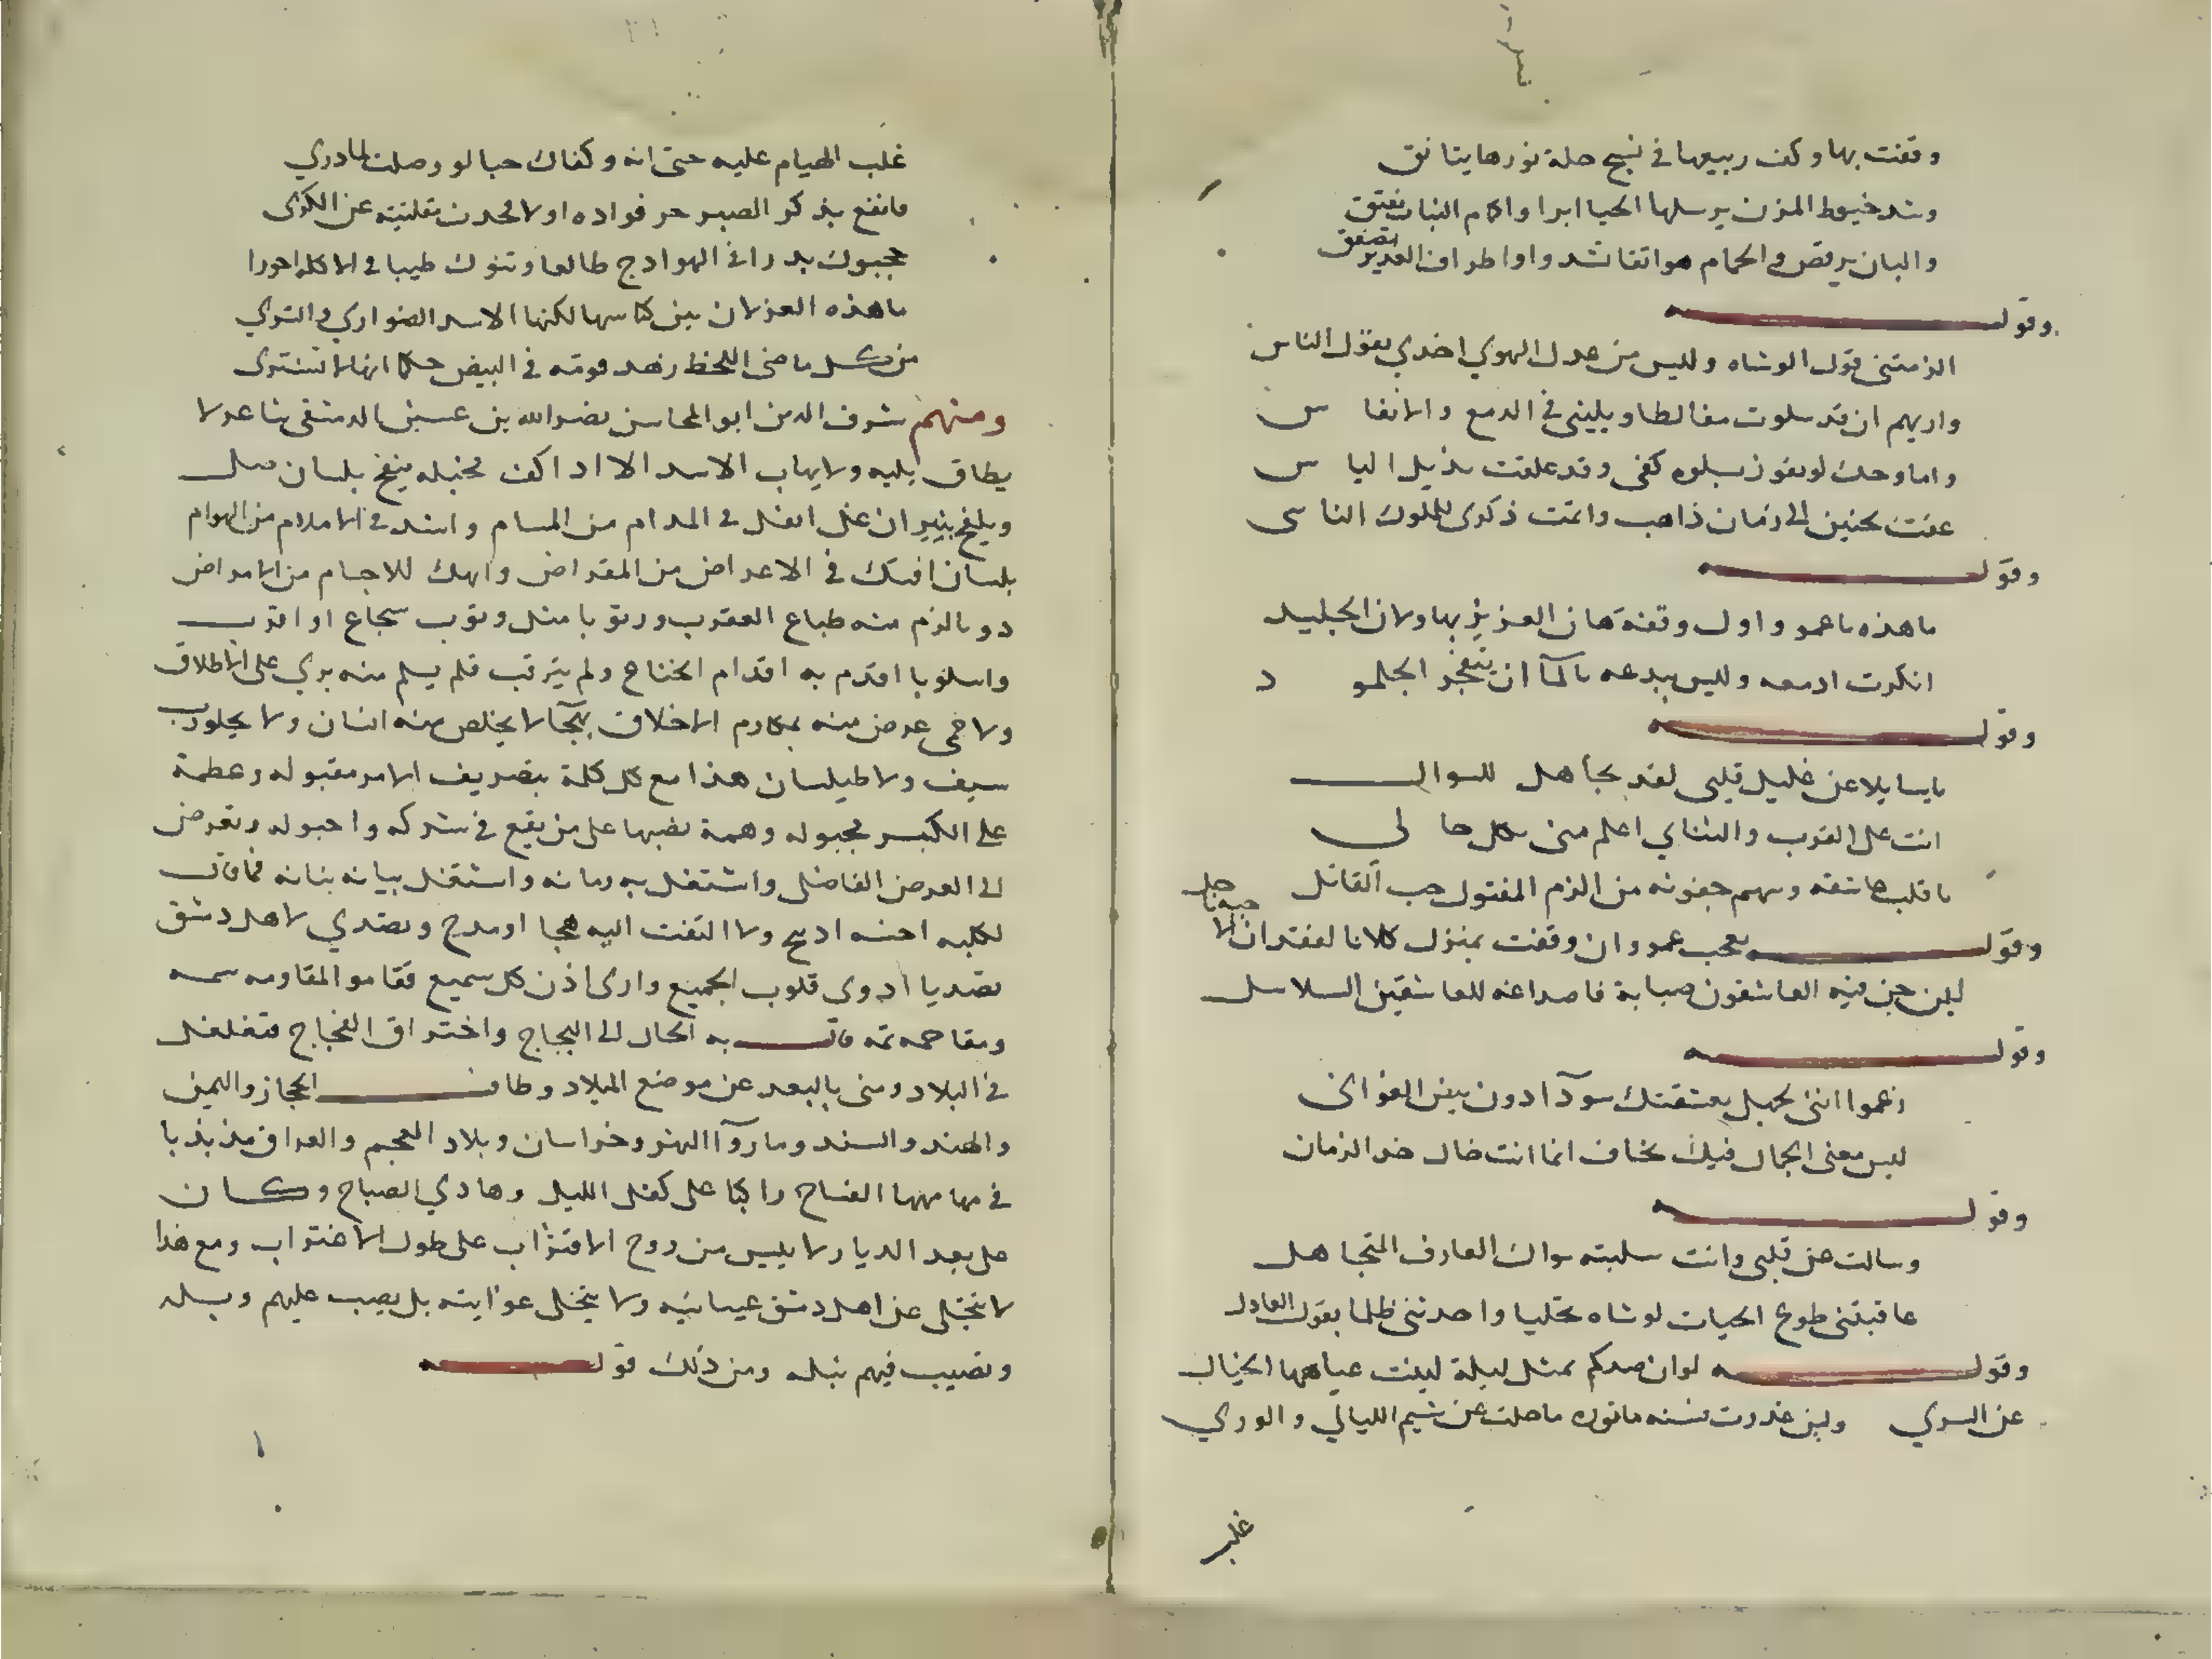 وقفت بها وكف ربيعها في نسج حلة نورها يتانق
وتمد خيوط المزن يرسلها الحيا ابرا واكمام النبات تفتق
والبان يرقص والحمام هواتفا تشدو واطراف الغدير تصفق
وقوله
الزمتني قول الوشاه وليس من عدل الهوي اخدي بقول الناس
واريهم ان قد سلوت مغالطا ويليني في الدمع والانفاس
واما وحك لو نفوز بسلوه كفي وقد علقت بذيل الياس
عنت بحنين الى زمان ذاهب واتمت ذكرى للملوك الناسى
وقوله
ما هذه ياعمرو اول وقفة هان العزيز بها ولان الجليد
انكرت ادمعه وليس ببدعه بالمآ ان يتفجر الجلمود
وقوله
يا سايلا عن خليل قلبى لقد تجاهل للسوال
انت على القرب والتنائي اعلم منى بكل حالى
يا قلب عاشقه وسهم جفونه من الزم المقتول حب القاتل
وقوله تعجب عمرو ان وقفت بمنزل كلانا لفقدان الاحبه ناحل
لين جن فيه العاشقون صبابة فاصداغه للعاشقين السلاسل
وقوله
زعموا اننى بجهل تعشقتك سودآ دون بيض الغوانى
ليس معنى الجمال فيك بخاف انما انت خال خد الزمان
وقوله
وسالت عن قلبى وانت سلبته سوال العارف المتجاهل
عاقبتنى طوع الحيات لوشاه تخليا واخدتنى ظلما بقول العادل
وقوله لو ان صدكم بمثل ليلة لينت عياهبها الخيال
عن السري ولين غدرت فسنه ماتوره ما حلت عن شيم الليالي والوري
غلب
غلب الهيام عليه حتى انه وكفاك حبا لو وصلت لما دري
فانفع بذكر الصبر حر فواده اولا فحدث مقلتيه عن الكرى
حجبوك بدرا فى الهوادج طالعا وتنوك ظبيا فى الاكله احورا
ما هذه الغزلان بين كناسها لكنها الاسد الضواري في الشري
من كل ماضى اللحظ زهد قومه في البيض حكما انها لا تشترى
ومنهم شرف الدين ابو المحاسن نصر الله بن عنين الدمشقى شاعر لا
يطاق بليه ولا يهاب الاسد الا اذا كف مخبله ينفخ بلسان صل
ويلفح بنيران غل انفذ في المدام من المسام واشد في الاملام من الهوام
بلسان افتك في الاعراض من المقراض وانهك للاجسام من الامراض
دو يالزم منه طباع العقرب وريوبا مثل وثوب شجاع او اقرب
واسلوبا اقدم به اقدام الحتاح ولم يترقب فلم يسلم منه بري على الاطلاق
ولا حمى عرض منه بمكارم الاخلاق بهجآ لا يخلص منه انسان ولا يجلورب
سيف ولا طيلسان هذا مع كل كلمة بتصريف الامر مقبوله وعظمة
على الكبر مجبوله وهمة نصبها على من يقع في شركه واحبوله وتعرض
الى العرض الفاضل واشتغل به زمانه واستقل ببيانه بنانه فما قات
لكلبه احنه اديح ولا التفت اليه هجا او مدح وتصدي لاهل دمشق
تصديا ادوى قلوب الجميع وارى اذن كل سميع فقاموا لمقاومه سمه
ومقاحمه تمه فالت به الحال الى اللجاج واختراق الفجاج فتغلغل
في البلاد ومنى بالبعد عن موضع الميلاد وطاف الحجاز واليمن
والهند والسند وما ورآ النهر وخراسان وبلاد العجم والعراق مذبذبا
في مهامهها الفساح راكبا على كفل الليل وهادي الصباح وكان
على بعد الديار لا ييس من روح الاقتراب على طول الاغتراب ومع هذا
لا تخلى عن اهل دمشق عيناييه ولا يتخلى عوايته بل يصب عليهم وبله
وتصيب فيهم نبله ومن ذلك قوله